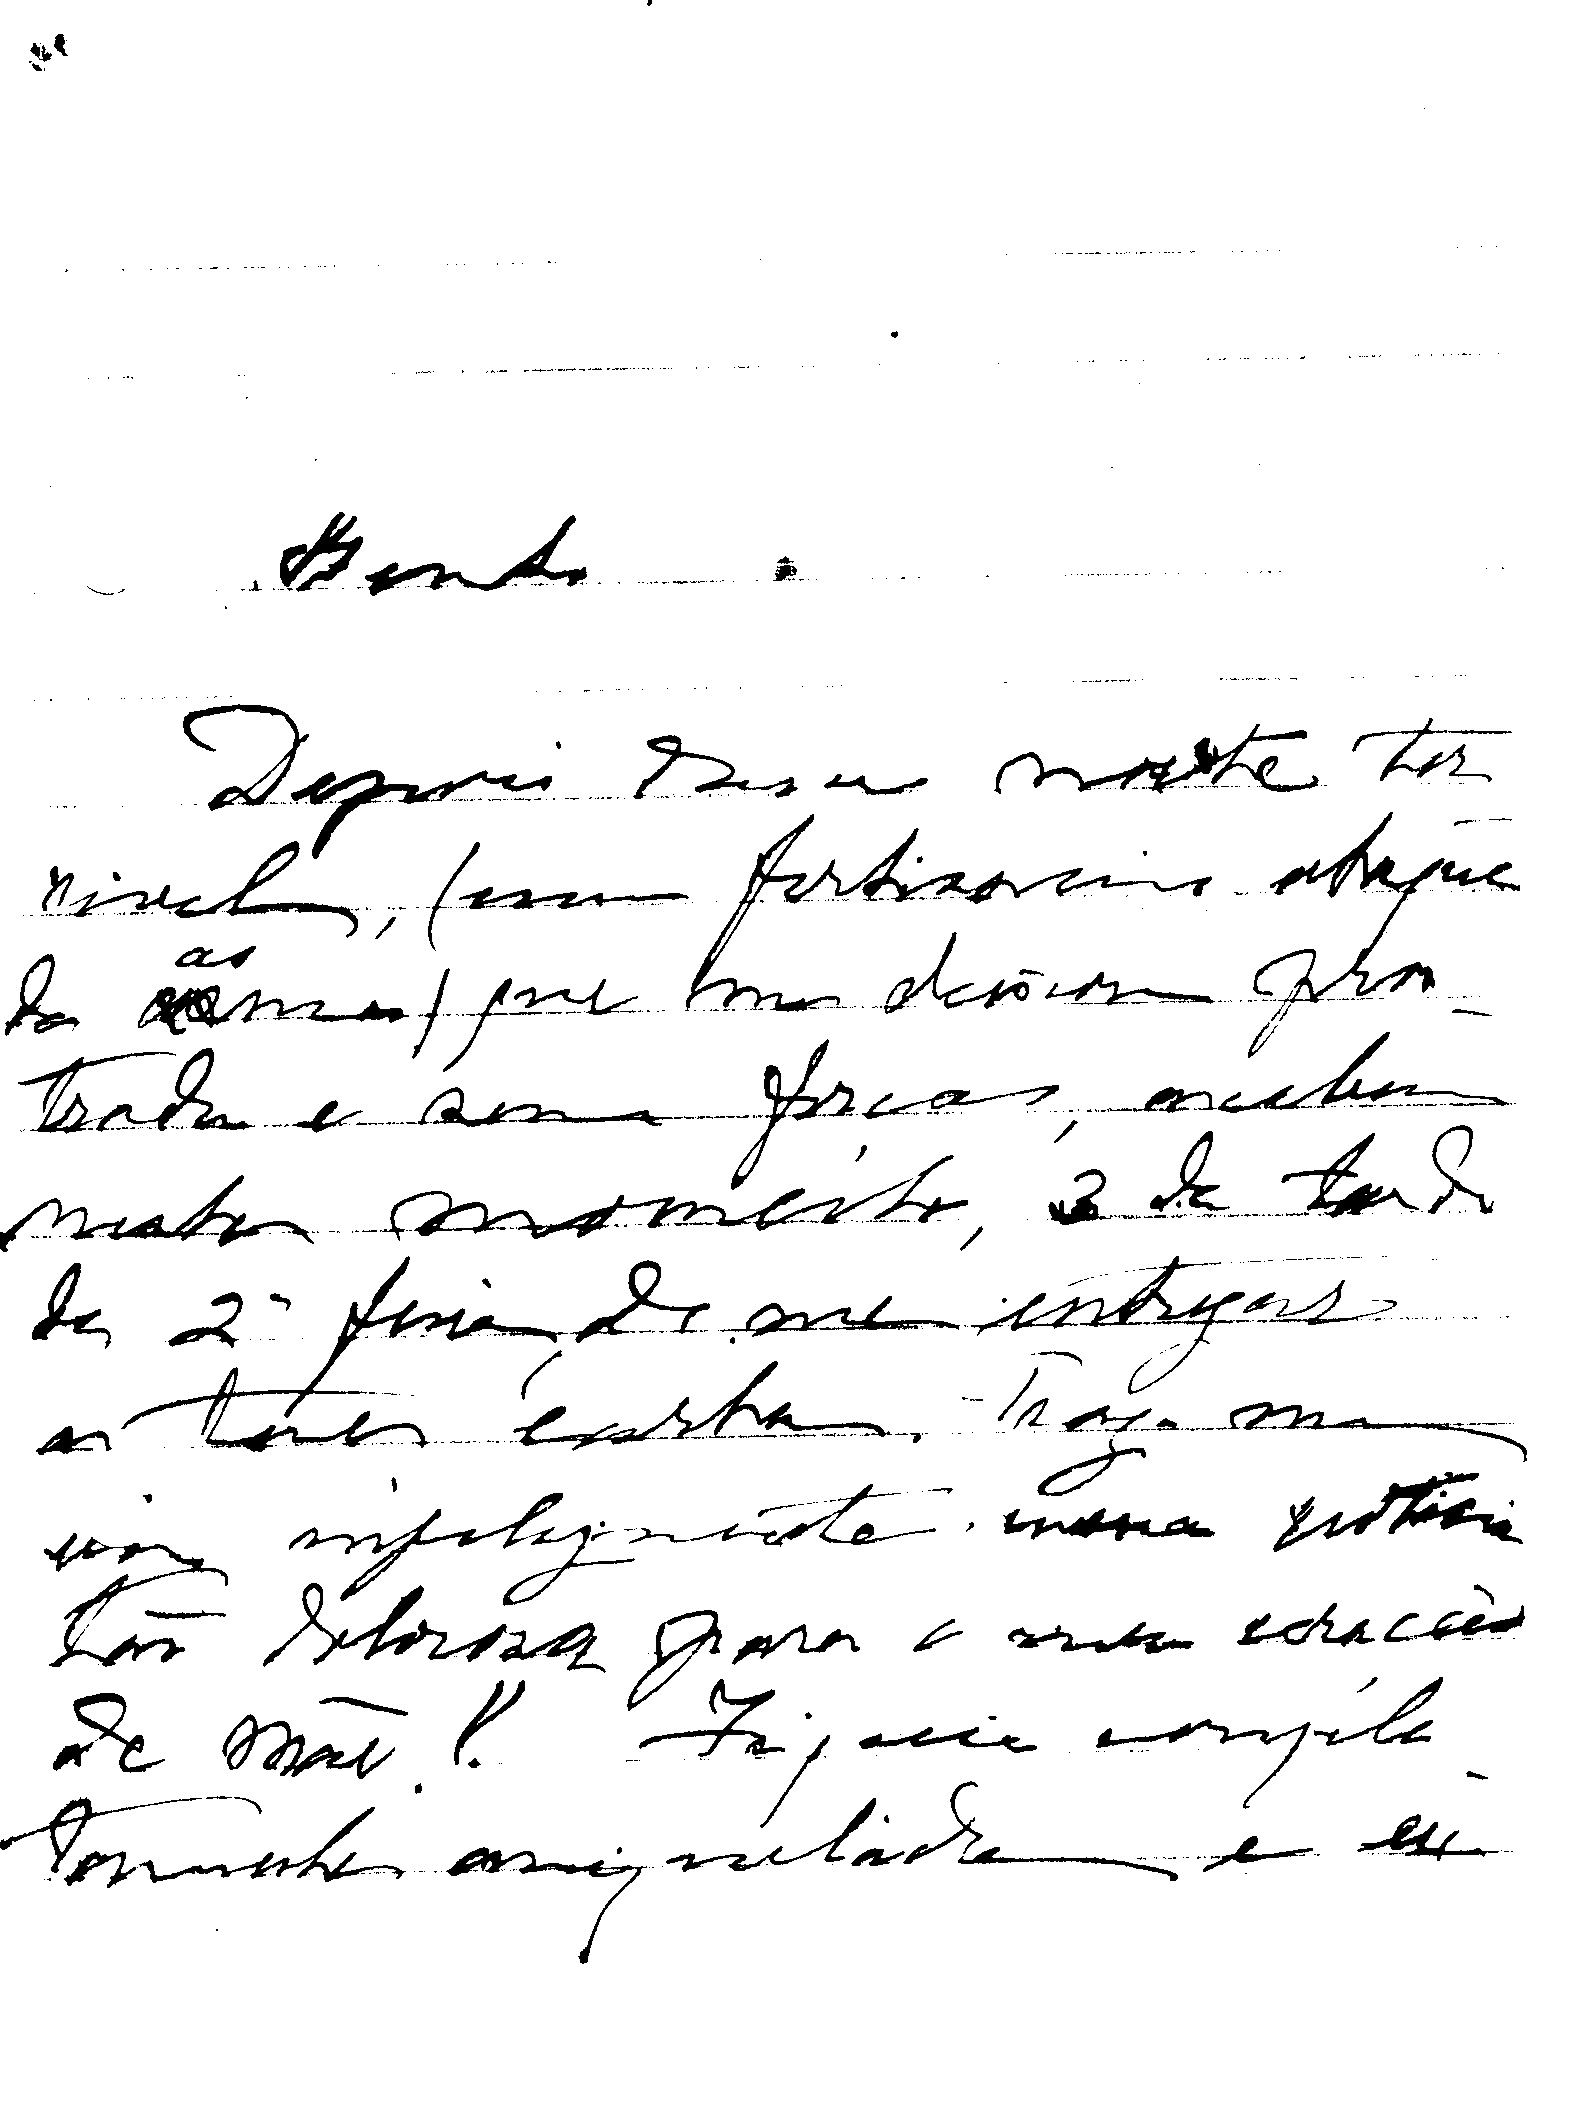 Bento
Depois duma noite ter
rivel, (um fortissimo ataque
da asma) que me deixou pros
trada e sem forças, acabam
neste momento, 3 da tarde
da 2ª feira, de me entregar
a tua carta. Traz-me
infelizmente uma noticia
tão dolorosa para o meu coração
de mãe!! Fiquei comple
tamente aniquilada e ex